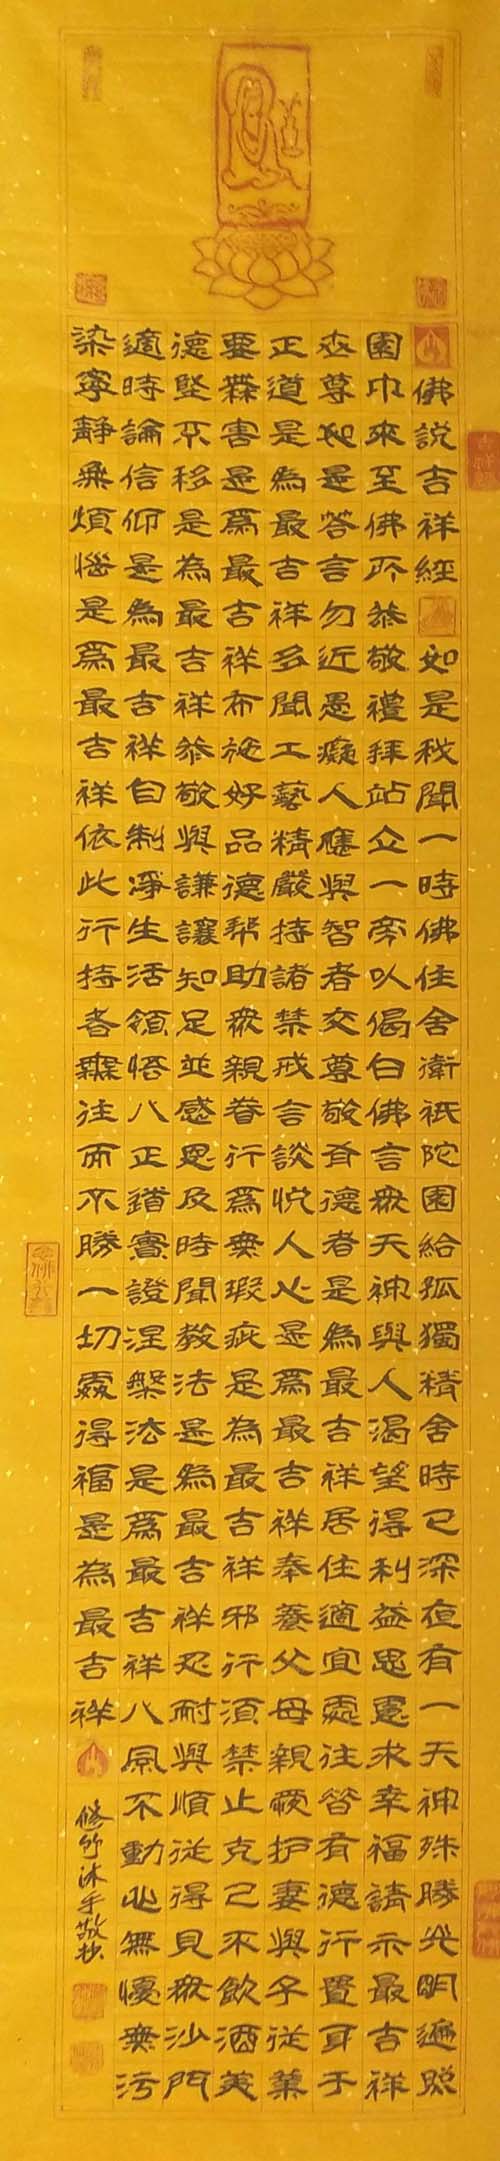 佛說吉祥經 如是我聞一時佛住舍衛祇陀園給孤獨精舍時已深夜有一天神殊勝光明遍照
園巾來至佛所恭敬禮拜站立一旁以偈白佛言眾天神與人渴望得利益思慮求幸福請示最吉祥
世尊如是答言勿近愚癡人應與智者交尊敬有德者是為最吉祥居住適宜處往昔有德行置身于
正道是為最吉祥多聞工藝精嚴持諸禁戒言談悅人心是為最吉祥奉養父母親愛护妻與子從業
要無害是為最吉祥布施好品德帮助眾親眷行為無瑕疵是為最吉祥邪行須禁止克己不飲酒美
德堅不移是為最吉祥恭敬與謙讓知足並感恩及時聞教法是為最吉祥忍耐與順從得見眾沙門
適時論信仰是為最吉祥自制淨生活領悟八正道實證涅槃法是為最吉祥八風不動心無憂無污
染寧靜無煩惱是為最吉祥依此行持者無往而不勝一切處得福是為最吉祥
修竹沐手敬抄